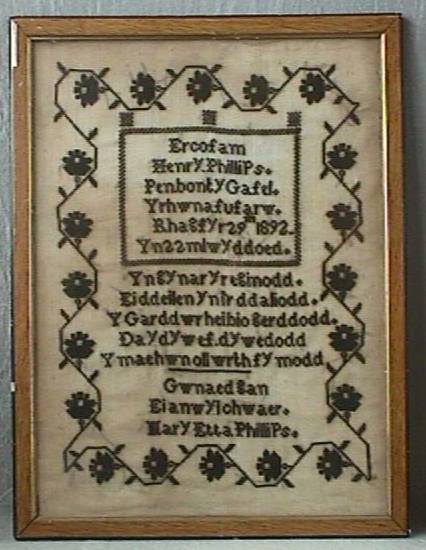 Er cof am
Henry Phillips.
Penbont y Gafel.
Yr hwn a fu farw.
Rhagfyr 29th 1892.
Yn 22 mlwydd oed.
Yn gynar yr egin odd.
Ei ddeilen yn îrddaliodd.
Y Garddwr heibio gerddodd.
Da ydyw ef. dywedodd
Y mae hwn oll wrth fy modd
Gwnaed gan
Ei anwyl chwaer.
Mary Etta Phillips.